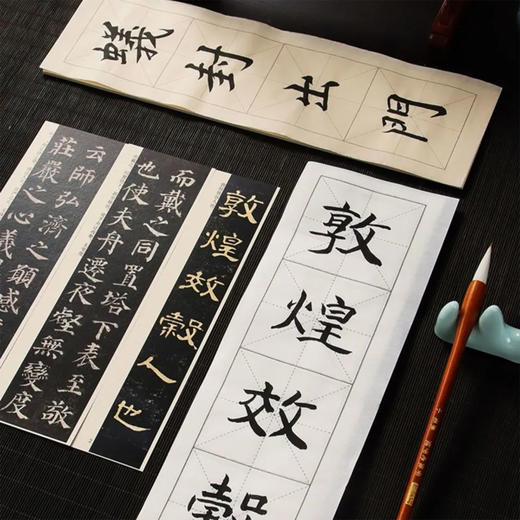 蟻封出門
敦煌效穀
敦煌效穀人也
而戴之同置塔下表至敬
也使夫舟遷夜壑無變度
云師弘濟之願感
莊嚴之心義